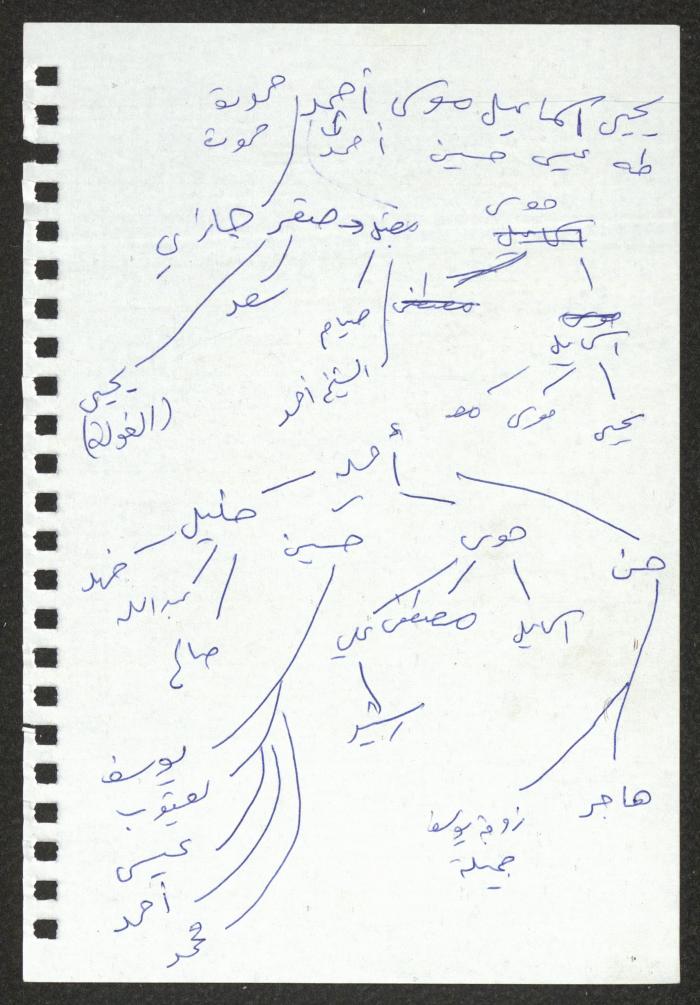 يحيى اسماعيل موسى أحمد حمودة
طه عيسى حسين أحمد حمودة
موسى
صقر جازاي
اسماعيل
سعد
مصطفى
صيام
موسى
اسماعيل
الشيخ أحمد
يحيى
(الغولة)
يحيى موسى
أحمد
خليل
حسين
موسى
حسن
فهد
عبدالله
صالح
اسماعيل
مصطفى
علي
رشيد
يوسف
يعقوب
عيسى
أحمد
محمد
هاجر
زوجة يوسف
جميلة